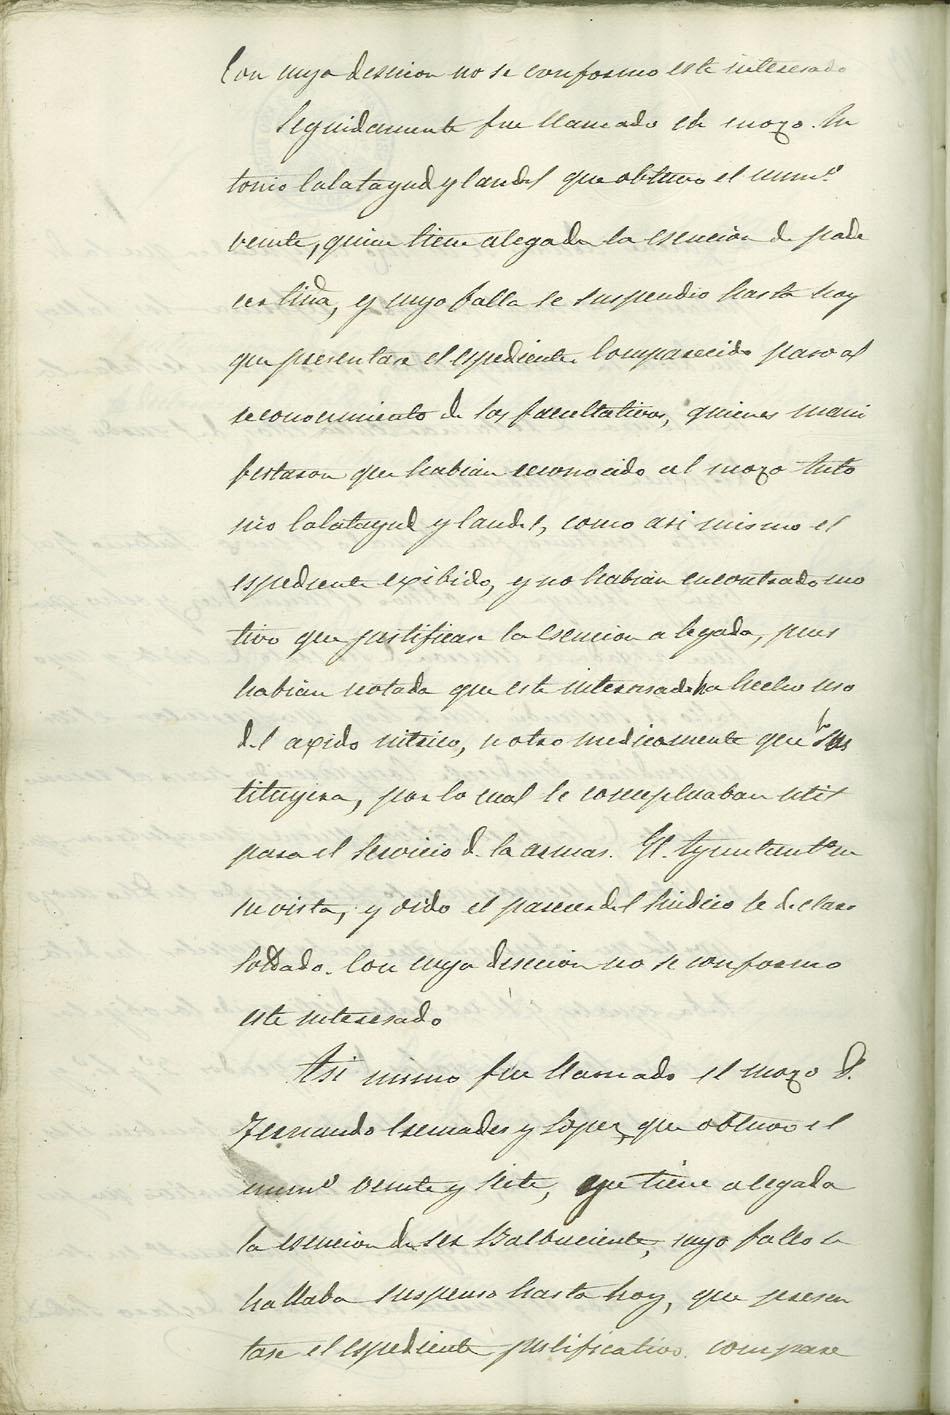 Con cuya desicion no se conformo este interesado
Seguidamente fue llamado el mozo An
tonio Calatayud y Candel que obtuvo el num.º
veinte, quien tiene alegada la esencion de pade
cer tiña, y cuyo fallo se suspendio hasta hoy
que presentare el espediente Comparecido paso al
reconocimiento de los facultativos, quienes mani
festaron que habian reconocido al mozo Anto
nio Calatayud y Candel, como asi mismo el
espediente exibido, y no habian encontrado mo
tivo que justificase la esencion alegada, pues
habian notado que este interesado ha hecho uso
del acido nitrico, u otro medicamento que lo sus
tituyera, por lo cual le conceptuaban util
para el servicio de las armas. El Ayuntamt.º en
su vista, y oido el parecer del Sindico le declaro
soldado. Con cuya desicion no se conformo
este interesado
Asi mismo fue llamado el mozo D.
Fernando Cremades y Lopez, que obtuvo el
num.º veinte y siete, que tiene alegada
la esencion de ser Balbuciente, cuyo fallo se
hallaba suspenso hasta hoy, que presen
tare el espediente justificativo. compare